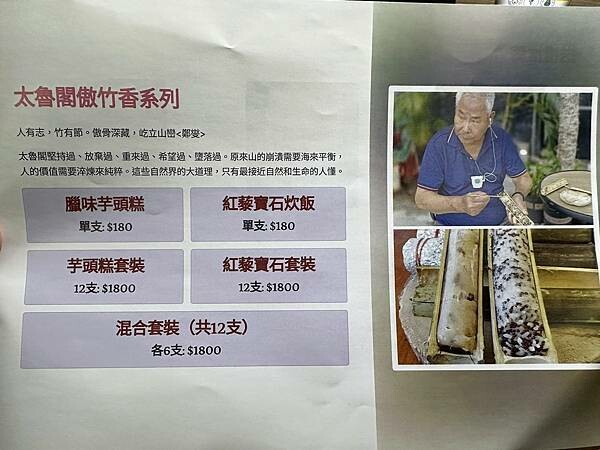 太魯閣傲竹香系列
人有志，竹有節。傲骨深藏，屹立山巒<鄭燮>
太魯閣堅持過、放棄過、重來過、希望過、墮落過。原來山的崩潰需要海來平衡，
人的價值需要淬煉來純粹。這些自然界的大道理，只有最接近自然和生命的人懂。
臘味芋頭糕
單支: $180
紅藜寶石炊飯
單支: $180
芋頭糕套裝
12支: $1800
紅藜寶石套裝
12支: $1800
混合套裝（共12支）
各6支: $1800